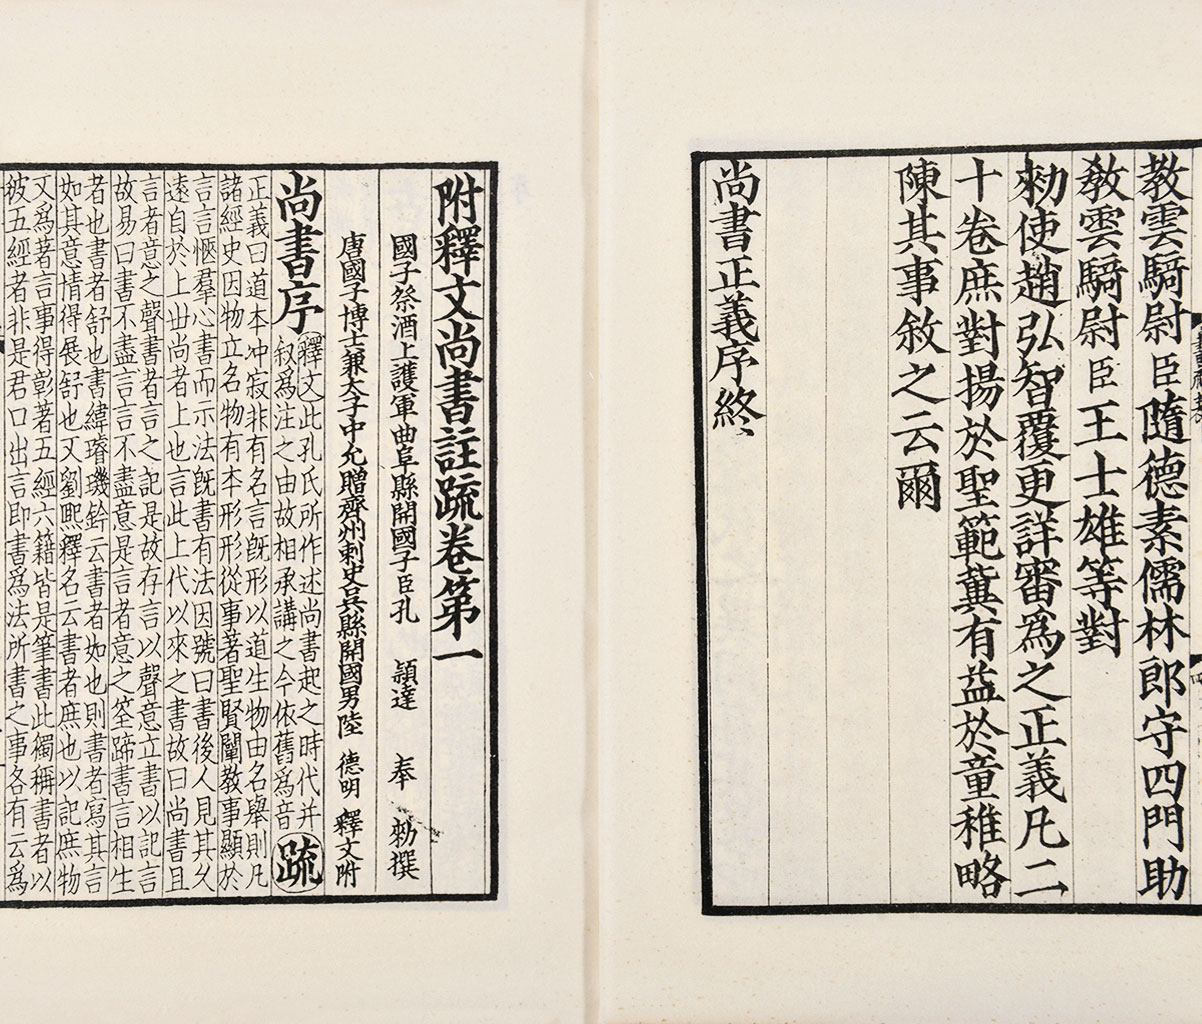 教雲騎尉臣隨德素儒林郎守四門助
敎雲騎尉臣王士雄等對
勑使趙弘智覆更詳審爲之正義凡二
十卷庶對揚於聖範冀有益於童稚略
陳其事敘之云爾
尚書正義序終
附釋文尚書註疏卷第一
國子祭酒上護軍曲阜縣開國子臣孔 穎達 奉 勑撰
唐國子博士兼太子中允贈齊州刺史吳縣開國男陸 德明 釋文附
尚書序 釋文此孔氏所作述尚書起之時代并
叙爲注之由故相承講之今依舊爲音 疏
正義曰道本冲寂非有名言旣形以道生物由名舉則凡
諸經史因物立名物有本形形從事著聖賢闡教事顯於
言言愜羣心書而示法旣書有法因號曰書後人見其久
遠自於上世尚者上也言此上代以來之書故曰尚書且
言者意之聲書者言之記是故存言以聲意立書以記言
故易曰書不盡言言不盡意是言者意之筌蹄書言相生
者也書者舒也書緯璿璣鈐云書者如也則書者寫其言
如其意情得展舒也又劉熙釋名云書者庶也以記庶物
又爲著言事得彰著五經六籍皆是筆書此獨稱書者以
彼五經者非是君口出言即書爲法所書之事各有云爲